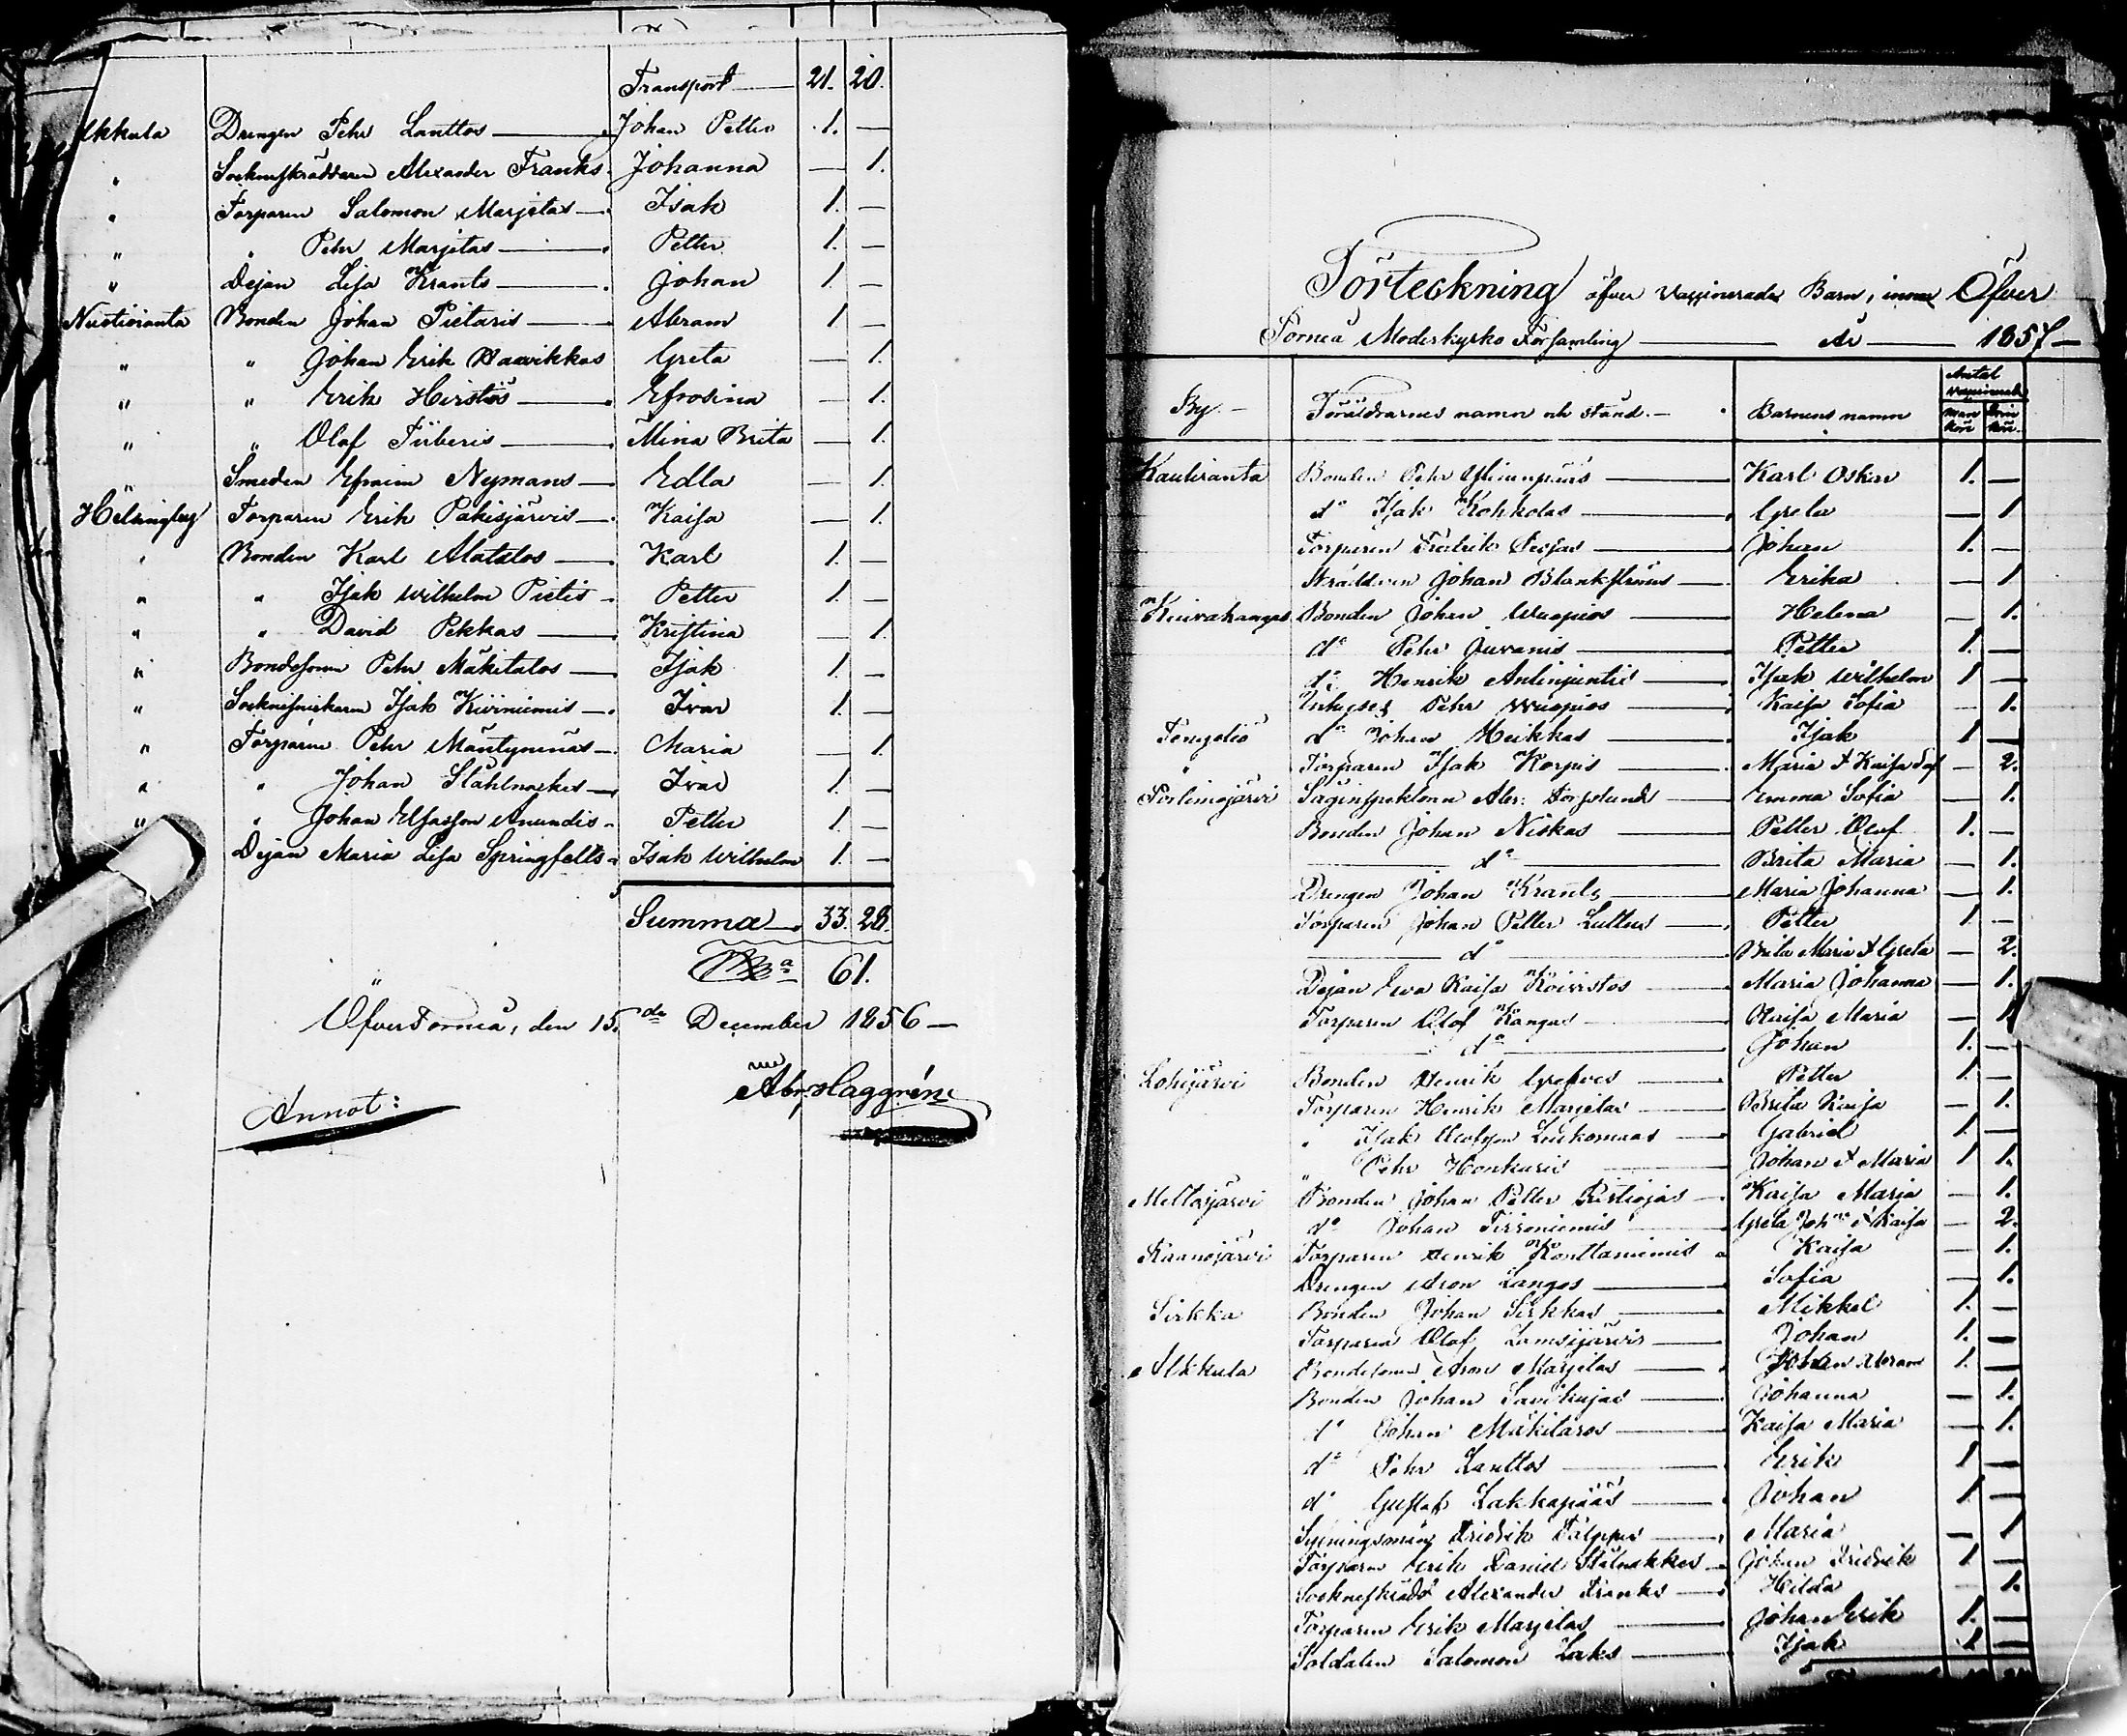 Transport — 21. 20.
Alkkula Drengen Pehr Lanttos — Johan Petter 1. —
" Sockneskräddaren Alexander Franks. Johanna — 1.
" Torparen Salomon Marjetas — Isak 1. —
" " Pehr Marjetas — Petter 1. —
" Dejan Lisa Krants — Johan 1 —
Nuotioranta Bonden Johan Pietaris — Abram 1 —
" " Johan Erik Waarikkas Greta — 1.
" " Erik Heistös — Efrosina — 1.
" " Olof Tüberis — Mina Brita — 1.
" Smeden Efraim Nymans — Edla — 1.
Helsingby Torparen Erik Pakisjärvis — Kaisa — 1.
" Bonden Karl Alatalos — Karl 1. —
" " Isak Wilhelm Pietis — Petter 1. —
" " David Pekkas — Kristina — 1.
" Bondesonen Pehr Mäkitalos — Isak 1. —
" Isak Kiviniemis — Ivar 1. —
" Torparen Pehr Mäntyniemis — Maria — 1.
" " Johan Stahlnackes — Ivar 1. —
" " Johan Elfasson Anundis — Petter 1. —
Dejan Maria Lisa Springfelts Isak Wilhelm 1. —
Summa — 33. 28.
61.
ÖfverTorneå, den 15de December 1856 —
Abr. Haggrén
Annot:
Förteckning öfver Vaccinerade Barn, inom Öfver
Torneå Moderkyrko Församling — År — 1857 —
By. — Föräldrarnes namn och stånd. — Barnens namn Antal vaccinerade man kön qvin kön.
Kauliranta Bonden Pehr — Karl Oskar 1. —
do Isak Kohkolas — Greta — 1
Torparen Fredrik — Johan 1. —
Skräddaren Johan Blankströms — Erika — 1
Kuivakangas Bonden Johan Wuopios — Helena — 1.
do Pehr Juvanis — Petter 1. —
do Henrik Antinjuntis — Isak Wilhelm 1 —
Inhyses Pehr Wuopios — Kaisa Sofia — 1.
Tengeliö do Johan Heikkas — Isak 1 —
" Torparen Isak Korpis — Maria & Kaisa Sof — 2.
Portimojärvi Såginspektoren Abr. — Emma Sofia — 1.
Bonden Johan Niskas — Petter Olof 1. —
— do — Brita Maria — 1.
Drengen Johan Krants — Maria Johanna — 1.
Torparen Johan Petter Luttus — Petter 1 —
— do — Brita Maria & Greta — 2.
Dejan Eva Kaisa Koivistos — Maria Johanna — 1.
Torparen Olof Kangas — Kaisa Maria — 1
— do — Johan 1. —
Lohijärvi Bonden Henrik Grefves — Petter 1. —
Torparen Henrik Marjetas — Brita Kaisa — 1.
" Isak Olofsson Liukomaas — Gabriel 1. —
" Pehr Honkaris — Johan & Maria 1 1.
Meltosjärvi Bonden Johan Petter Ristiojas — Kaisa Maria — 1.
do Johan Tirroniemis — Greta Johna & Kaisa — 2.
Raanojärvi Torparen Henrik Konttaniemis — Kaisa — 1.
Drengen Aron Langos — Sofia — 1.
Sirkka Bonden Johan Sirkkas — Mikkel 1. —
Torparen Olof Lamsijärvis — Johan 1. —
Alkkula Bondesonen Aron Marjetas — Johan Abram 1. —
Bonden Johan Savikujas — Johanna — 1.
do Johan Mäkitalos — Kaisa Maria — 1.
do Pehr Lanttos — Erik 1 —
do Gustaf Lakkapääs — Johan 1 —
Fridrik — Maria — 1
Torparen Erik Daniel Stålnakkes — Johan Fredrik 1 —
Sockneskrädd Alexander Franks — Hilda — 1.
Torparen Erik Marjetas — Johan Erik 1. —
Soldaten Salomon Laks — Isak 1 —